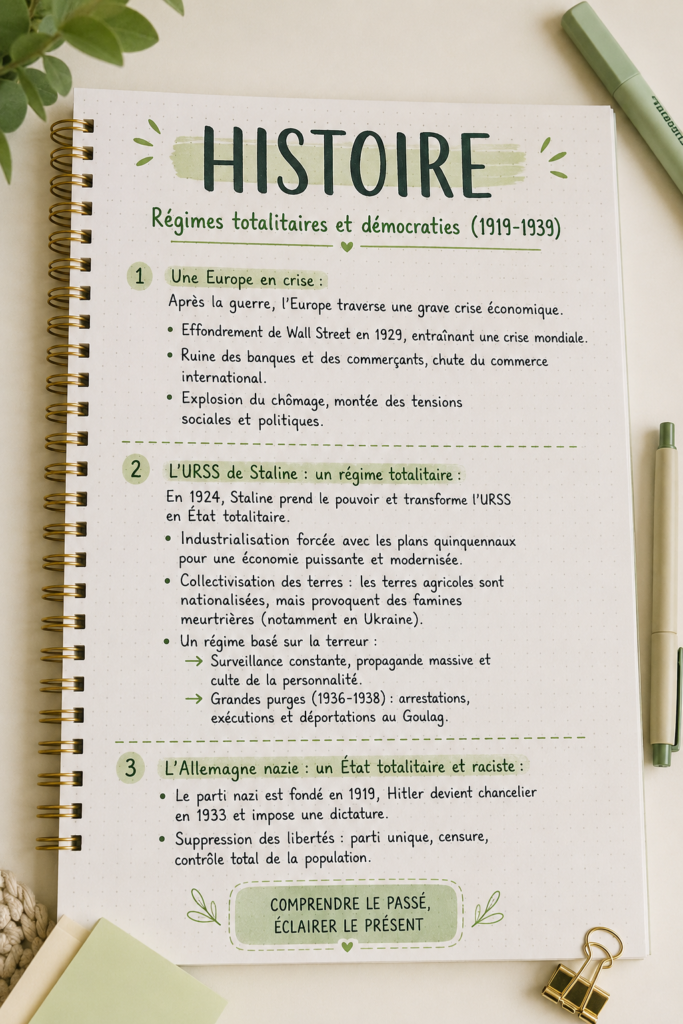 HISTOIRE
Régimes totalitaires et démocraties (1919-1939)
1 Une Europe en crise :
Après la guerre, l'Europe traverse une grave crise économique.
• Effondrement de Wall Street en 1929, entraînant une crise mondiale.
• Ruine des banques et des commerçants, chute du commerce
international.
• Explosion du chômage, montée des tensions
sociales et politiques.
2 L'URSS de Staline : un régime totalitaire :
En 1924, Staline prend le pouvoir et transforme l'URSS
en État totalitaire.
• Industrialisation forcée avec les plans quinquennaux
pour une économie puissante et modernisée.
• Collectivisation des terres : les terres agricoles sont
nationalisées, mais provoquent des famines
meurtrières (notamment en Ukraine).
• Un régime basé sur la terreur :
→ Surveillance constante, propagande massive et
culte de la personnalité.
→ Grandes purges (1936-1938) : arrestations,
exécutions et déportations au Goulag.
3 L'Allemagne nazie : un État totalitaire et raciste :
• Le parti nazi est fondé en 1919, Hitler devient chancelier
en 1933 et impose une dictature.
• Suppression des libertés : parti unique, censure,
contrôle total de la population.
COMPRENDRE LE PASSÉ,
ÉCLAIRER LE PRÉSENT